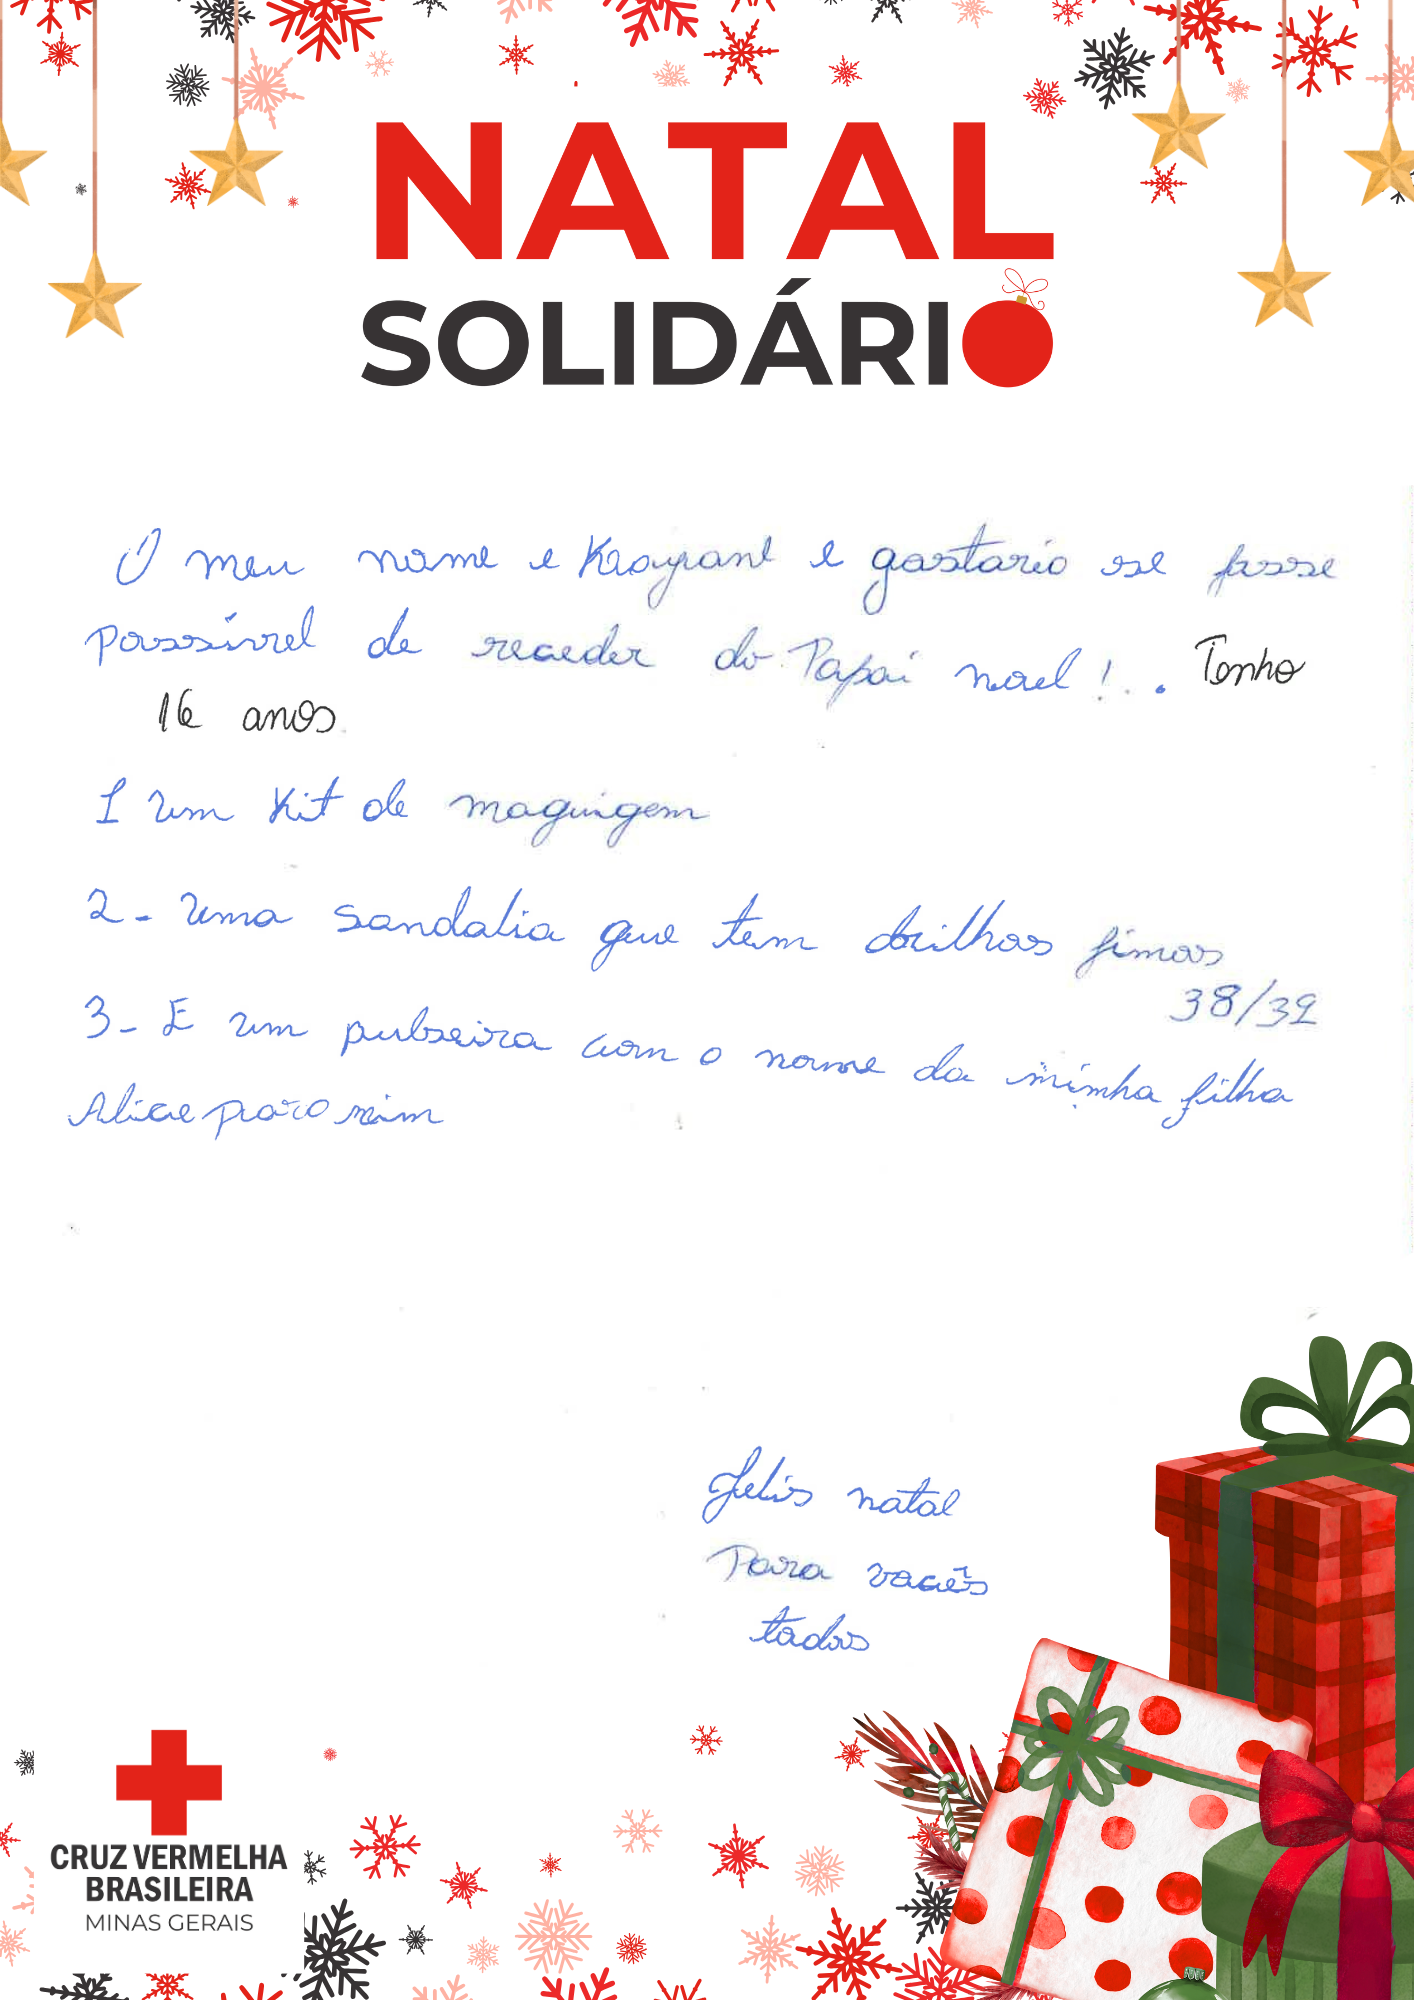 NATAL
SOLIDÁRIO
O meu nome e e gostario se fosse
possível de receder do Papai noel!.. Tenho
16 anos
1 um Kit de maguigem
2- uma sandalia que tem brilhos fimos
38/39
3- E um pulseira com o nome da minha filha
Alice para mim
Felis natal
Para vocês
todos
CRUZ VERMELHA
BRASILEIRA
MINAS GERAIS